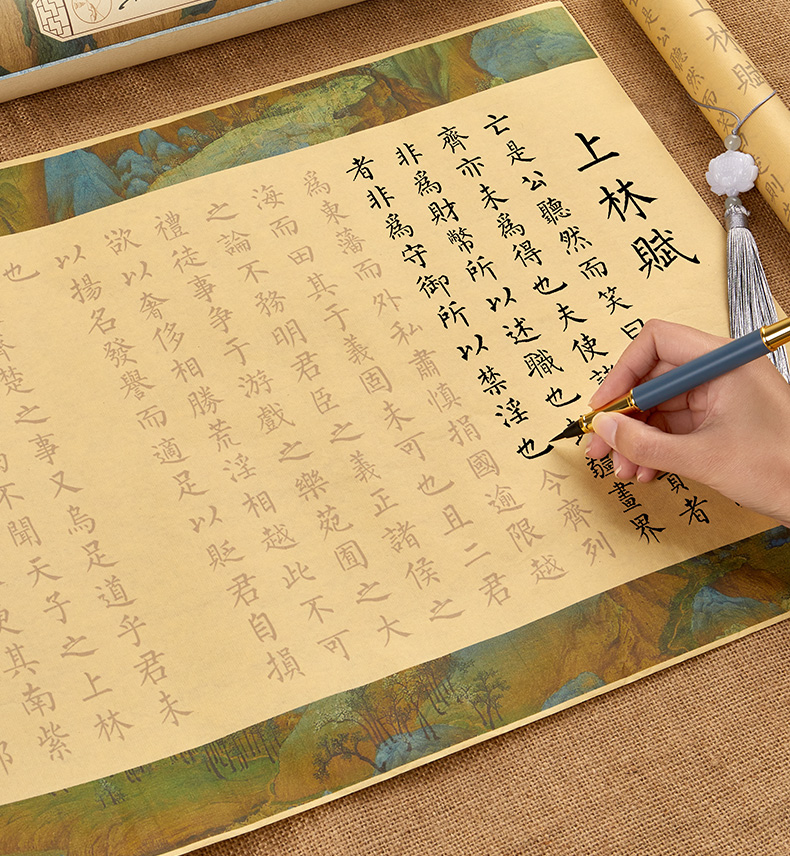 上林賦
亡是公聽然而笑曰
齊亦未為得也夫使諸貢者
非為財幣所以述職也疆畫界
者非為守御所以禁淫也今齊列
為東藩而外私肅慎捐國逾限越
海而田其于義固未可也且二君
之論不務明君臣之義正諸侯之
禮徒事争于游戲之樂苑囿之大
欲以奢侈相勝荒淫相越此不可
以揚名發譽而適足以貶君自損
也齊楚之事又烏足道乎君未
不聞天子之上林
更其南紫
上林賦
是公聽然而